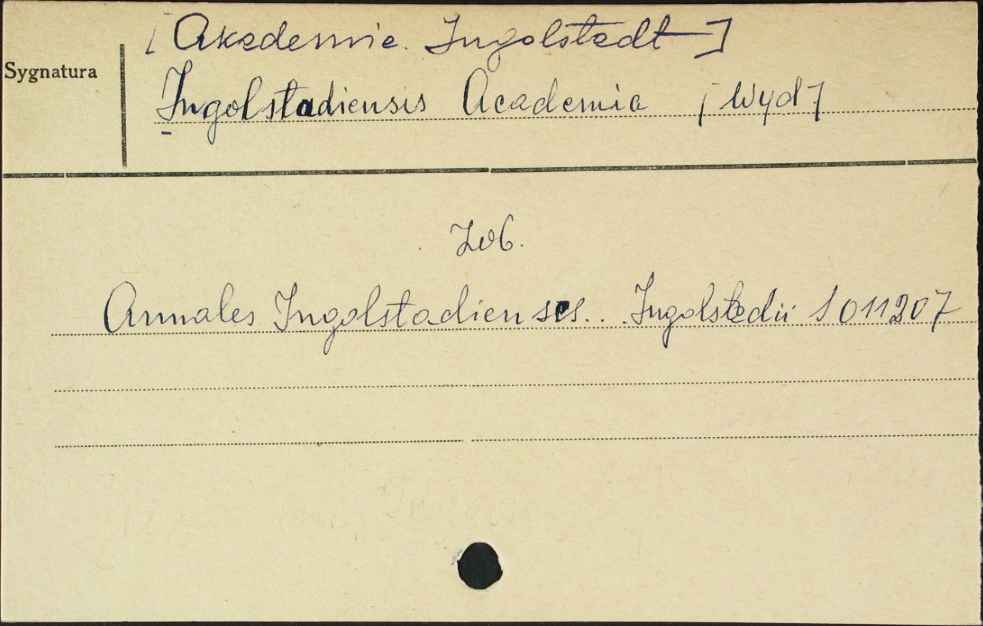 [Akademie. Ingolstadt]
Sygnatura
Ingolstadiensis Academia [Wyd]
Zob.
Annales Ingolstadienses.. Ingolstadii 1011207